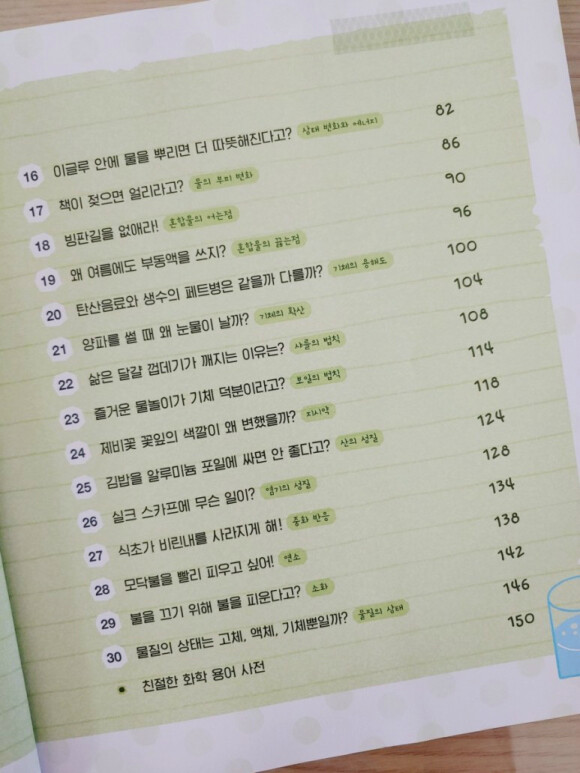 16 이글루 안에 물을 뿌리면 더 따뜻해진다고? 상태 변화와 에너지 82
17 책이 젖으면 얼리라고? 물의 부피 변화 86
18 빙판길을 없애라! 혼합물의 어는점 90
19 왜 여름에도 부동액을 쓰지? 혼합물의 끓는점 96
20 탄산음료와 생수의 페트병은 같을까 다를까? 기체의 용해도 100
21 양파를 썰 때 왜 눈물이 날까? 기체의 확산 104
22 삶은 달걀 껍데기가 깨지는 이유는? 샤를의 법칙 108
23 즐거운 물놀이가 기체 덕분이라고? 보일의 법칙 114
24 제비꽃 꽃잎의 색깔이 왜 변했을까? 지시약 118
25 김밥을 알루미늄 포일에 싸면 안 좋다고? 산의 성질 124
26 실크 스카프에 무슨 일이? 염기의 성질 128
27 식초가 비린내를 사라지게 해! 중화 반응 134
28 모닥불을 빨리 피우고 싶어! 연소 138
29 불을 끄기 위해 불을 피운다고? 소화 142
30 물질의 상태는 고체, 액체, 기체뿐일까? 물질의 상태 146
• 친절한 화학 용어 사전 150